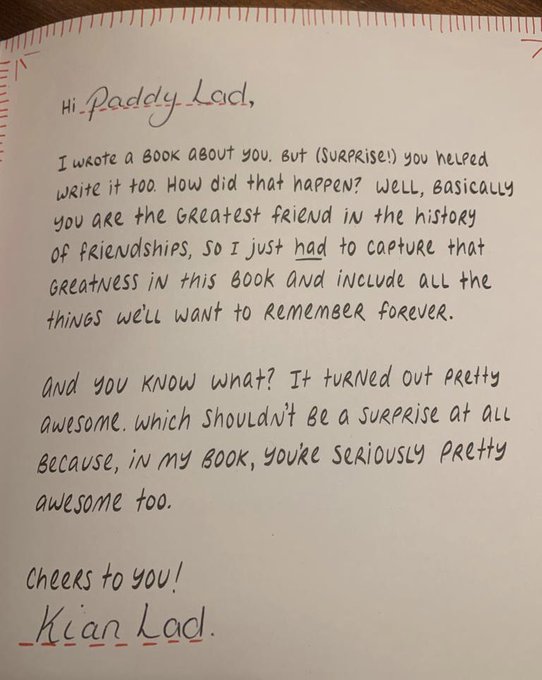 Hi Paddy Lad,
I wrote a book about you. But (surprise!) you helped
write it too. How did that happen? Well, basically
you are the greatest friend in the history
of friendships, so I just had to capture that
greatness in this book and include all the
things we'll want to remember forever.
And you know what? It turned out pretty
awesome. Which shouldn't be a surprise at all
because, in my book, you're seriously pretty
awesome too.
Cheers to you!
Kian Lad.